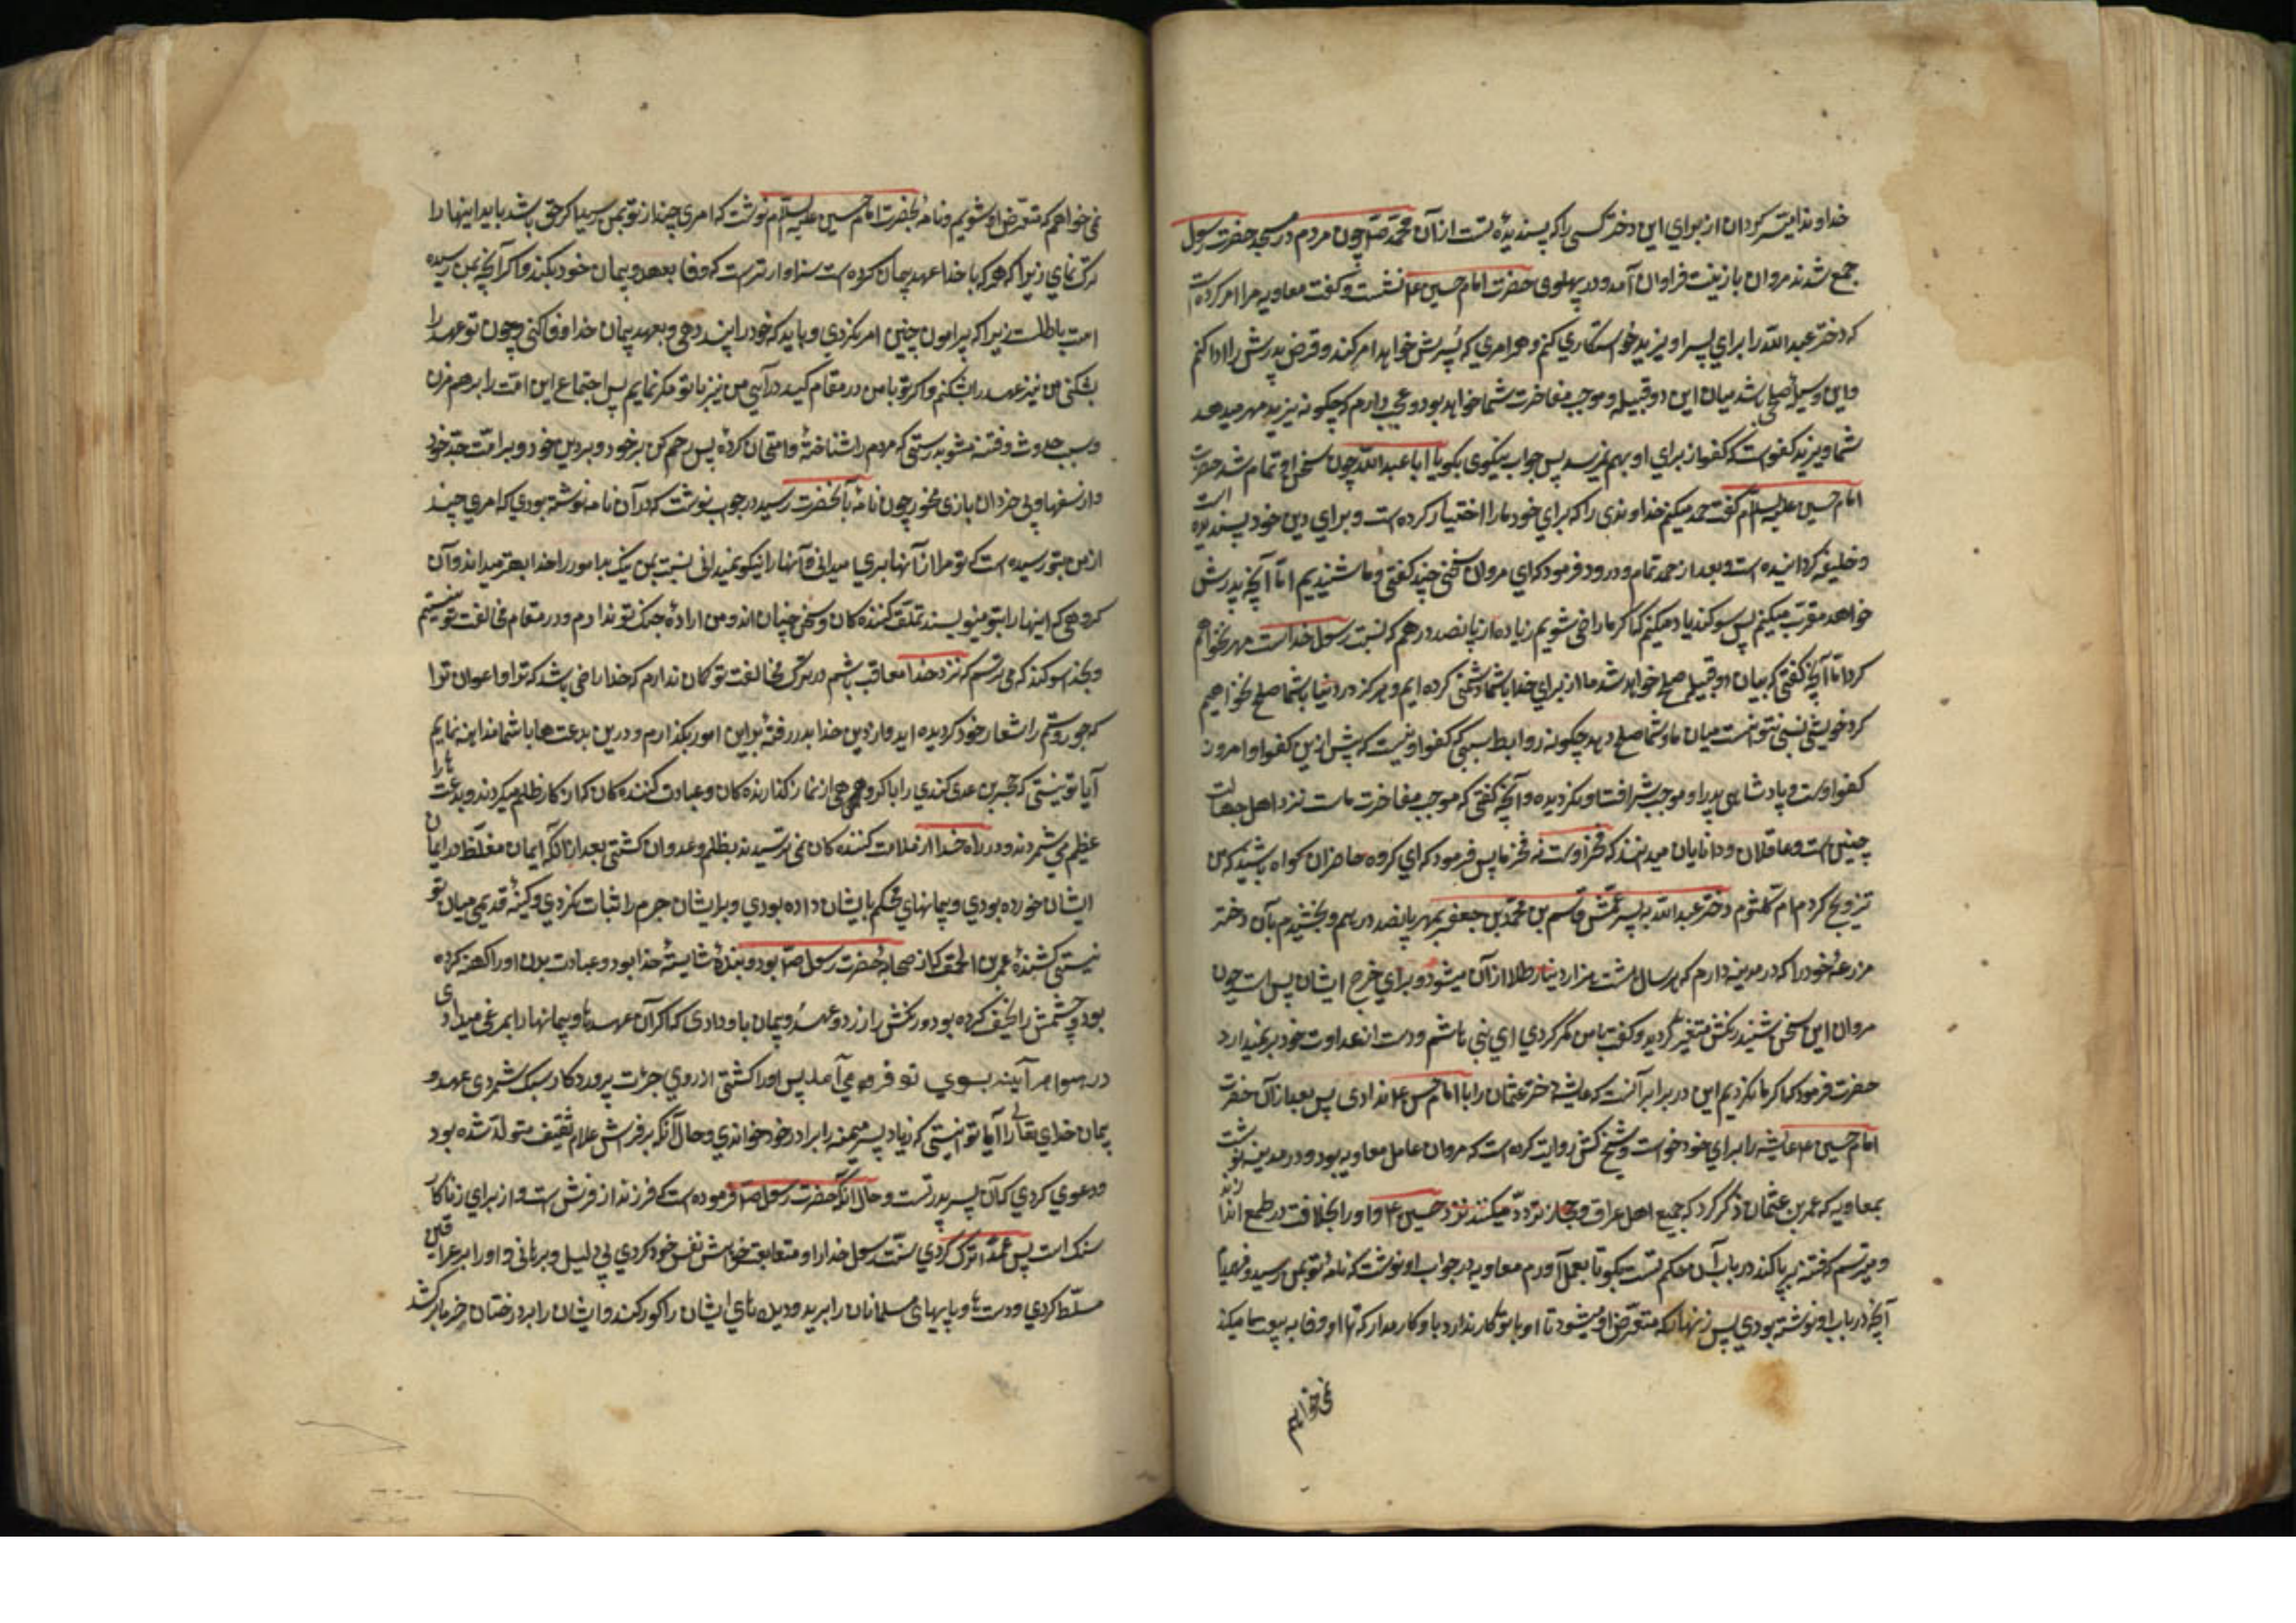 خداوندا میسّر کردان از برای این دختر کسی را که پسندیدهٔ تست از آن محمّد ص چون مردم در مسجد حضرت رسول
جمع شدند مروان با زینت فراوان آمد و در پهلوی حضرت امام حسین ع نشست و کفت معاویه مرا امر کرده است
که دختر عبد اللّه را برای پسر او یزید خواستکاری کنم و هر امری که پدرش خواهد امر کند و قرض پدرش را ادا کنم
و این وسیلهٔ صلحی باشد میان این دو قبیله و موجب مفاخرت شما خواهد بود و عجب دارم که چکونه یزید مهر میدهد
شما و یزید کفوست که کفو از برای او بهم نمیرسد پس جواب نیکوی بکو یا ابا عبد اللّه چون سخن او تمام شد حضرت
امام حسین علیه السلام کفت حمد میکنم خداوندی را که برای خود ما را اختیار کرده است و برای دین خود پسندیده است
و خلیفه کردانیده است و بعد از حمد تمام و درود فرمود که ای مروان سخنی چند کفتی و ما شنیدیم امّا آنچه پدرش
خواهد مقرّب میکنم پس سوکند یاد میکنم که اکر ما راضی شویم زیاده از پانصد درهم که سنّت رسول خداست مهر نخواهم
کرد امّا آنچه کفتی که میان دو قبیله صلح خواهد شد ما از برای خدا با شما دشمنی کرده ایم و هرکز در دنیا با شما صلح نخواهیم
کرد خویشی نسبی نتوانست میان ما و شما صلح دهد چکونه روابط سببی کفو او نیست که پیش ازین کفو او امروز
کفو اوست و پادشاهی پدر او موجب شرافت او نکردیده و آنچه کفتی که موجب مفاخرت ماست نزد اهل جهالت
چنین است و عاقلان و دانایان میدانند که فخر اوست نه فخر ما پس فرمود که ای کروه حاضران کواه باشید که من
تزویج کردم ام کلثوم دختر عبد اللّه به پسر عمّش قاسم بن محمّد بن جعفر بمهر پانصد درهم و بخشیدم بآن دختر
مزرعهٔ خود را که در مدینه دارم که هر سال هشت هزار دینار طلا از آن میشود و برای خرج ایشان پس است چون
مروان این سخن شنید رنکش متغیّر کردید و کفت با من مکر کردی ای بنی هاشم و دست از عداوت خود برنمیدارید
حضرت فرمود که اکر ما نکردیم این در برابر آنست که عایشه دختر عثمان را با امام حسن ع ندادی پس بعد از آن حضرت
امام حسین ع عایشه را برای خود خواست و شیخ کشی روایت کرده است که مروان عامل معاویه بود و در مدینه نوشت
بمعاویه که عمر بن عثمان ذکر کرد که جمیع اهل عراق و حجاز تردّد میکنند نزد حسین ع و او را بخلافت در طمع اندازند
و میترسم که فتنه بر پا کند در باب آن حکم تست بکو تا بعمل آورم معاویه در جواب او نوشت که نامهٔ تو بمن رسید و فهمیدم
آنچه در باب او نوشته بودی پس زنهار که متعرّض او میشود تا او با تو کار ندارد با و کار مدار که تا او وفا به بیعت ما میکند
نمی خواهیم
نمی خواهم که متعرّض او شویم و نامهٔ بحضرت امام حسین علیه السلام نوشت که امری چند از تو بمن رسید اکر حق باشد باید اینها را
ترک نمای زیرا که هر که با خدا عهد و پیمان کرده است سزاوارترست که وفا بعهد و پیمان خود بکند و اکر آنچه بمن رسیده
است باطلست زیرا که پیرامون چنین امر نکردی و باید که خود را پند دهی و بعهد و پیمان خدا وفا کنی و چون تو عهد را
بشکنی من نیز عهد را بشکنم و اکر تو با من در مقام کید درآیی من نیز با تو مکر نمایم پس اجتماع این امّت را بر هم مزن
و سبب حدوث فتنه مشو بدرستی که مردم را شناختهٔ و امتحان کردهٔ پس رحم کن بر خود و بر دین خود و بر امّت جدّ خود
و از سفیهان و بی خردان بازی مخور چون نامهٔ بآنحضرت رسید در جواب نوشت که در آن نامه نوشته بودی که امری چند
از من بتو رسیده است که تو مرا از آنها بری میدانی و آنها را نیکو نمیدانی نسبت بمن نیک و بد امور را خدا بهتر میداند و آن
کروهی که اینها را بتو مینویسند تملّق کننده کان و سخن چینان اند و من ارادهٔ جنک تو ندارم و در مقام مخالفت تو نیستم
و بخدا سوکند که می ترسم که نزد خدا معاقب باشم در ترک مخالفت تو کمان ندارم که خدا راضی باشد که ترا و اعوان ترا
که جور و ستم را شعار خود کردیده اید و از دین خدا بدر رفته بر این امور بکذارم و درین بدعت ها با شما مداهنه نمایم
آیا تو نیستی که حجر بن عدی کندی را با کروهی از نماز کذارنده کان و عبادت کننده کان که انکار ظلم میکردند و بدعت ها را
عظیم می شمردند و در راه خدا از ملامت کننده کان نمی ترسیدند بظلم و عدوان کشتی بعد از آنکه ایمان مغلّظه درامان
ایشان خورده بودی و پیمانهای محکم بایشان داده بودی و بر ایشان جرم را اثبات نکردی و کینهٔ قدیمی میان تو
نیستی کشندهٔ عمر بن الحمق که از صحابهٔ حضرت رسول ص بود و بندهٔ شایستهٔ خدا بود و عبادت بدن او را کهنه کرده
بود و جشمش را نحیف کرده بود و رنکش را زرد و عهد و پیمان با و دادی که اکر آن عهدها و پیمانها را بمرغی میدادی
در هوا هر آینه بسوی تو فرود می آمد پس او را کشتی از روی جرات پروردکار و سبک شمردی عهد و
پیمان خدای تعالی را آیا تو نیستی که زیاد پسر سمیّه را برادر خود خواندی و حال آنکه بر فرش غلام ثقیف متولّد شده بود
و دعوی کردی که آن پسر پدر تست و حال آنکه حضرت رسول ص فرموده است که فرزند از فرش است و از برای زناکار
سنک است پس عمداً ترک کردی سنّت رسول خدا را و متعابعت خواهش نفس خود کردی بی دلیل و برهانی و او را بر عراقین
مسلّط کردی و دست ها و پایهای مسلمانان را برید و دیده های ایشان را کور کند و ایشان را بر درختان خرما بر کشد